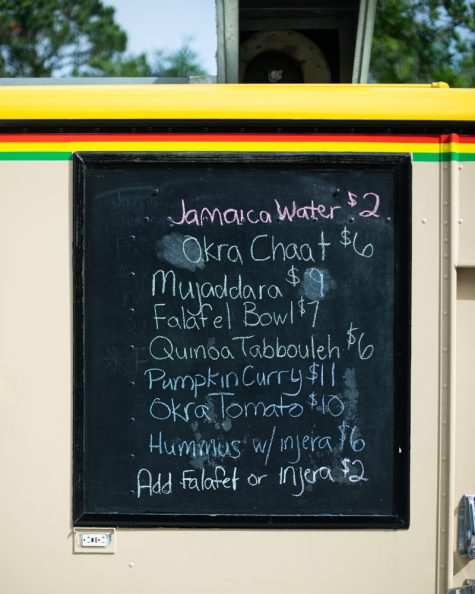 Jamaica Water $2
Okra Chaat $6
Mujaddara $9
Falafel Bowl $7
Quinoa Tabbouleh $6
Pumpkin Curry $11
Okra Tomato $10
Hummus w/ injera $6
Add Falafel or Injera $2